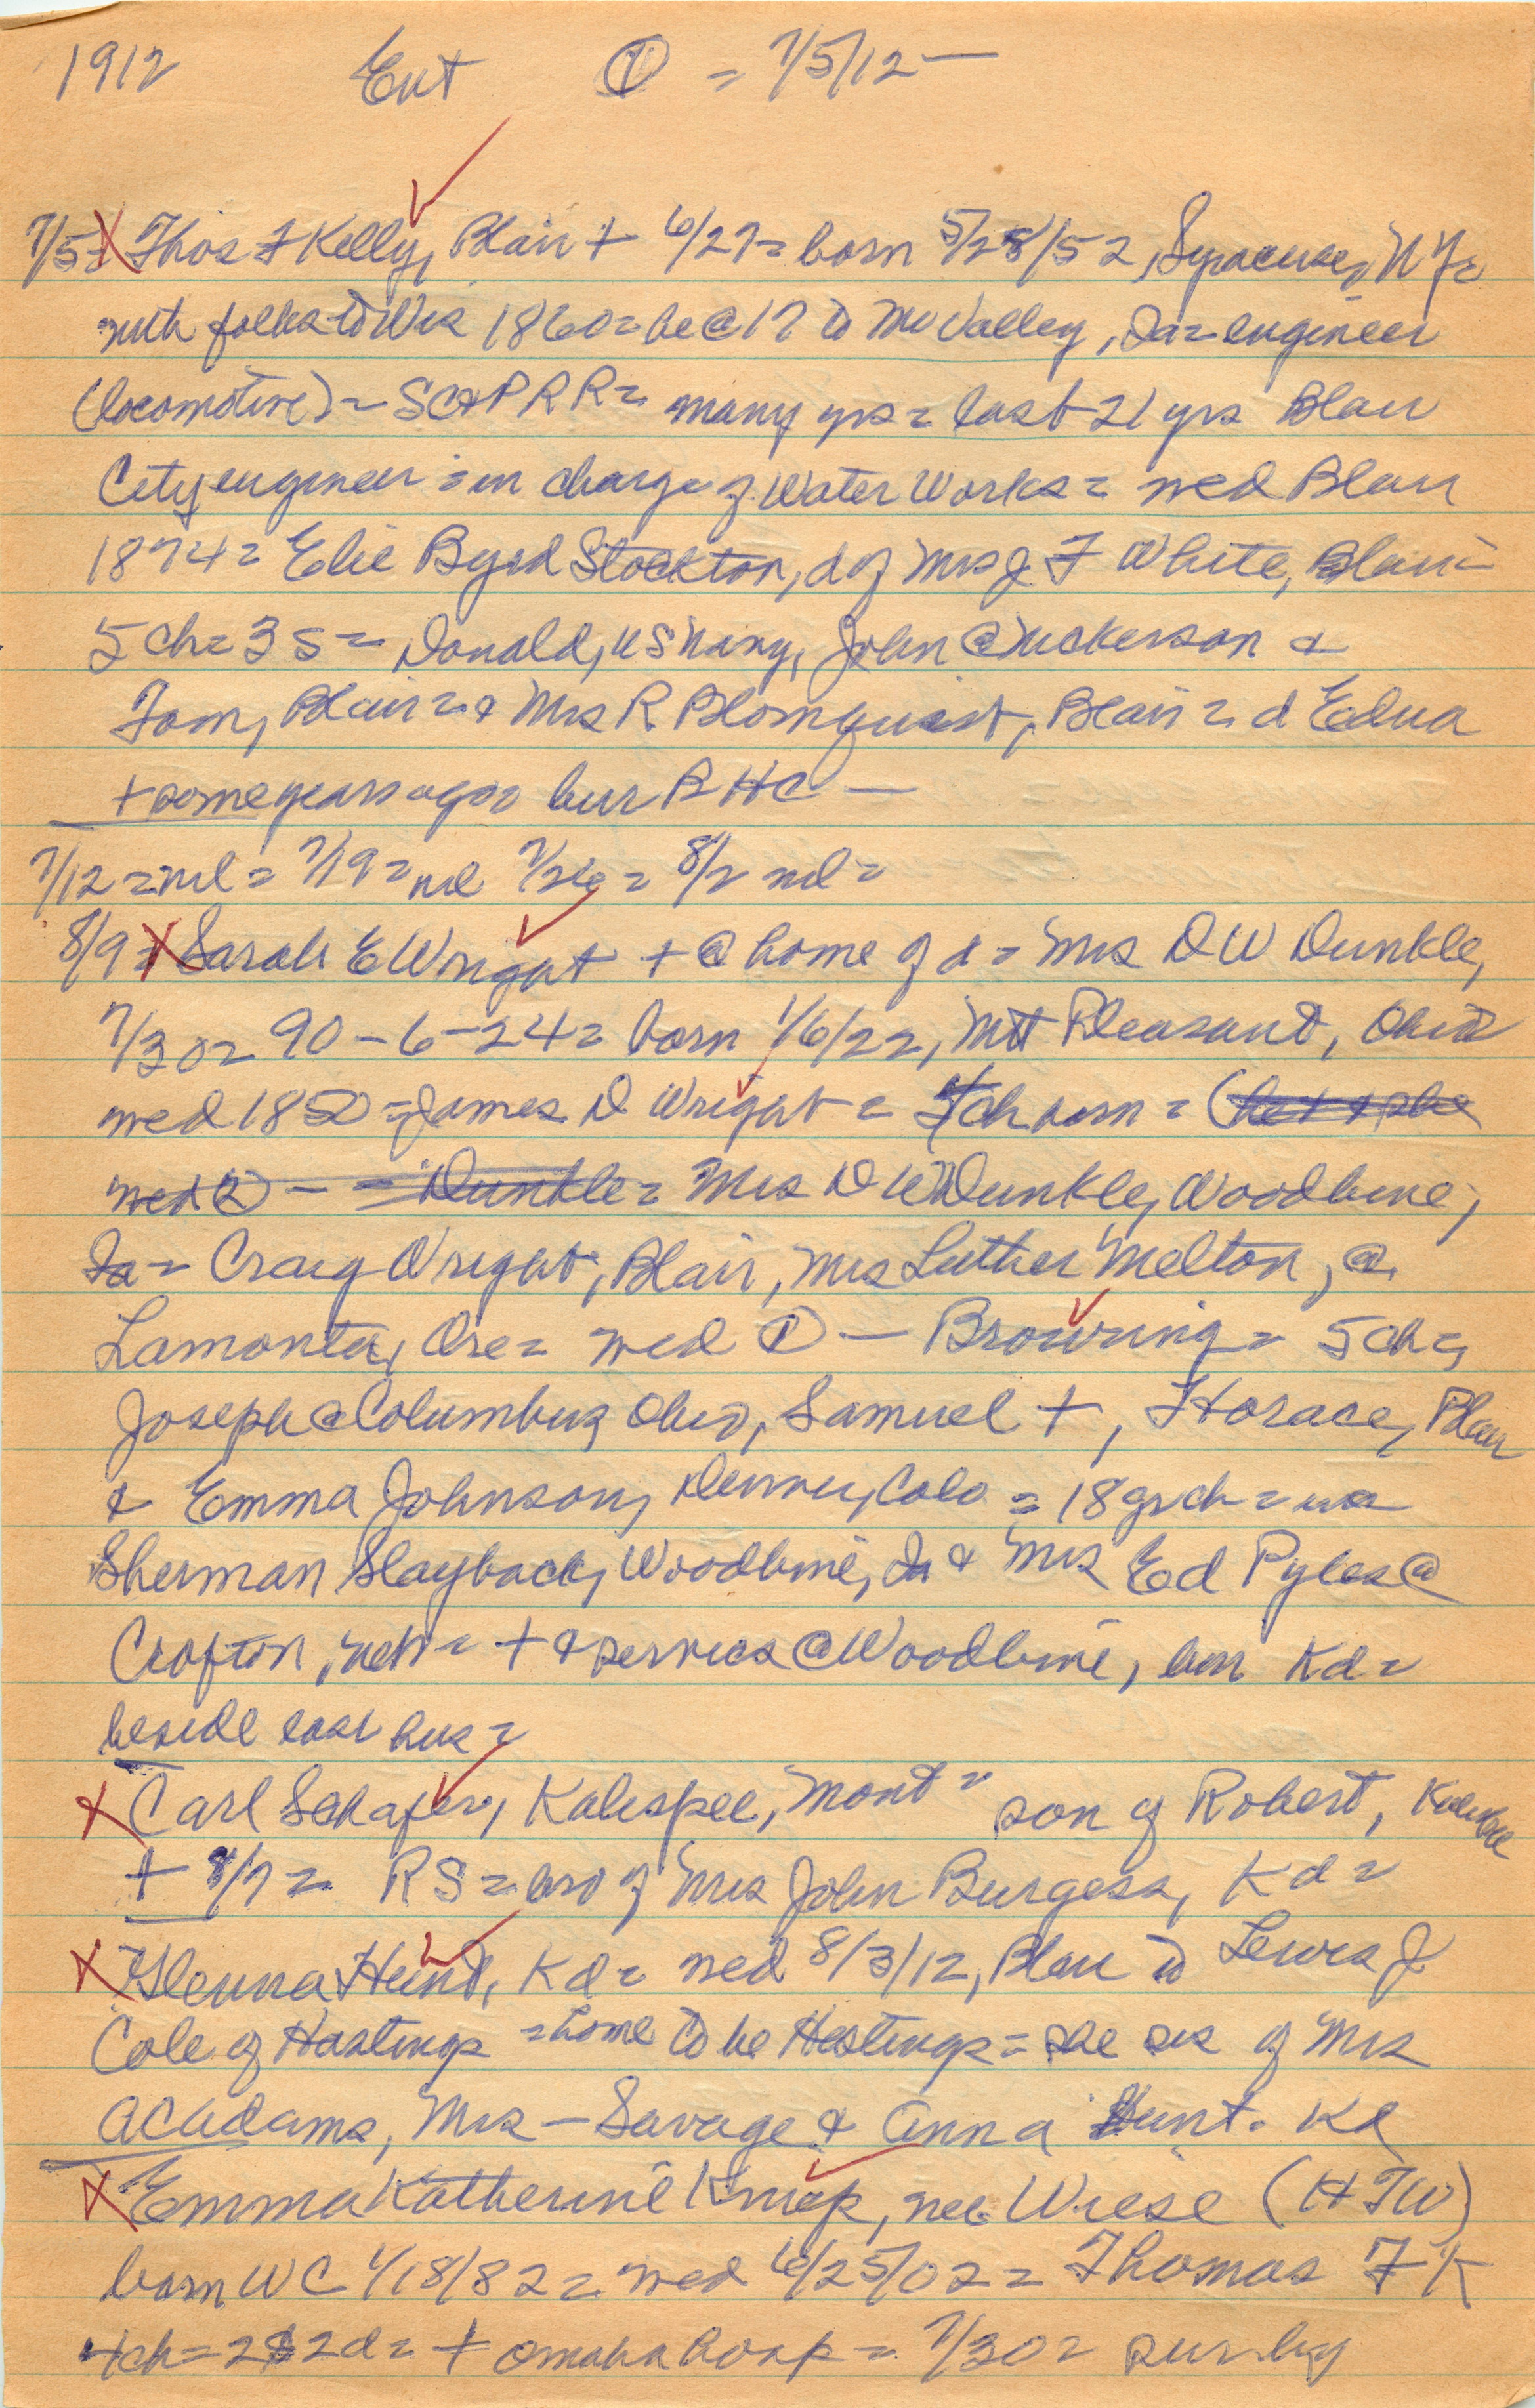 1912 Ent ① = 7/5/12 —
7/5 = X Thos F Kelly, Blair + 6/27 = born 5/28/52, Syracuse, N Y =
with folks to Wis 1860 = he @ 17 to Mo Valley, Ia = engineer
(locomotive) = SC&PRR = many yrs = last 21 yrs Blair
City engineer = in charge of Water Works = wed Blair
1874 = Elie Byrd Stockton, d of Mrs J F White, Blair =
5 ch = 3 s = Donald, US Navy, John @ Nickerson &
Tom, Blair = & Mrs R Blomquist, Blair = d Edna
+ some years ago = bur B H C —
7/12 = nil = 7/19 = nil 7/26 = 8/2 nil =
8/9 = X Sarah E Wright + @ home of d = Mrs D W Dunkle,
7/30 = 90 - 6 - 24 = born 1/6/22, Mt Pleasant, Ohio
wed 1850 = James D Wright = 4 ch born = (he + & she
wed ② - - = Dunkle = Mrs D W Dunkle, Woodbine,
Ia = Craig Wright, Blair, Mrs Luther Melton, @
Lamonta, Ore = wed ① — Browning = 5 ch =
Joseph @ Columbus, Ohio, Samuel +, Horace, Blair
& Emma Johnson, Denver, Colo = 18 grch =
Sherman Slayback, Woodbine, Ia & Mrs Ed Pyles @
Crofton, Neb = + & services @ Woodbine, bur Kd =
beside last hus =
X Carl Schafer, Kalispel, Mont = son of Robert,
+ 8/7 = RS = bro of Mrs John Burgess, Kd =
X Glenna Hunt, Kd = wed 8/3/12, Blair to Lewis J
Cole of Hastings = home to be Hastings = she sis of Mrs
AC Adams, Mrs — Savage & Anna Hunt. Kd
X Emma Katherine Kniep, nee Wiese (H T W)
born WC 1/18/82 = wed 6/25/02 = Thomas F K
4 ch = 2 s 2 d = + Omaha hosp = 7/30 = sur by